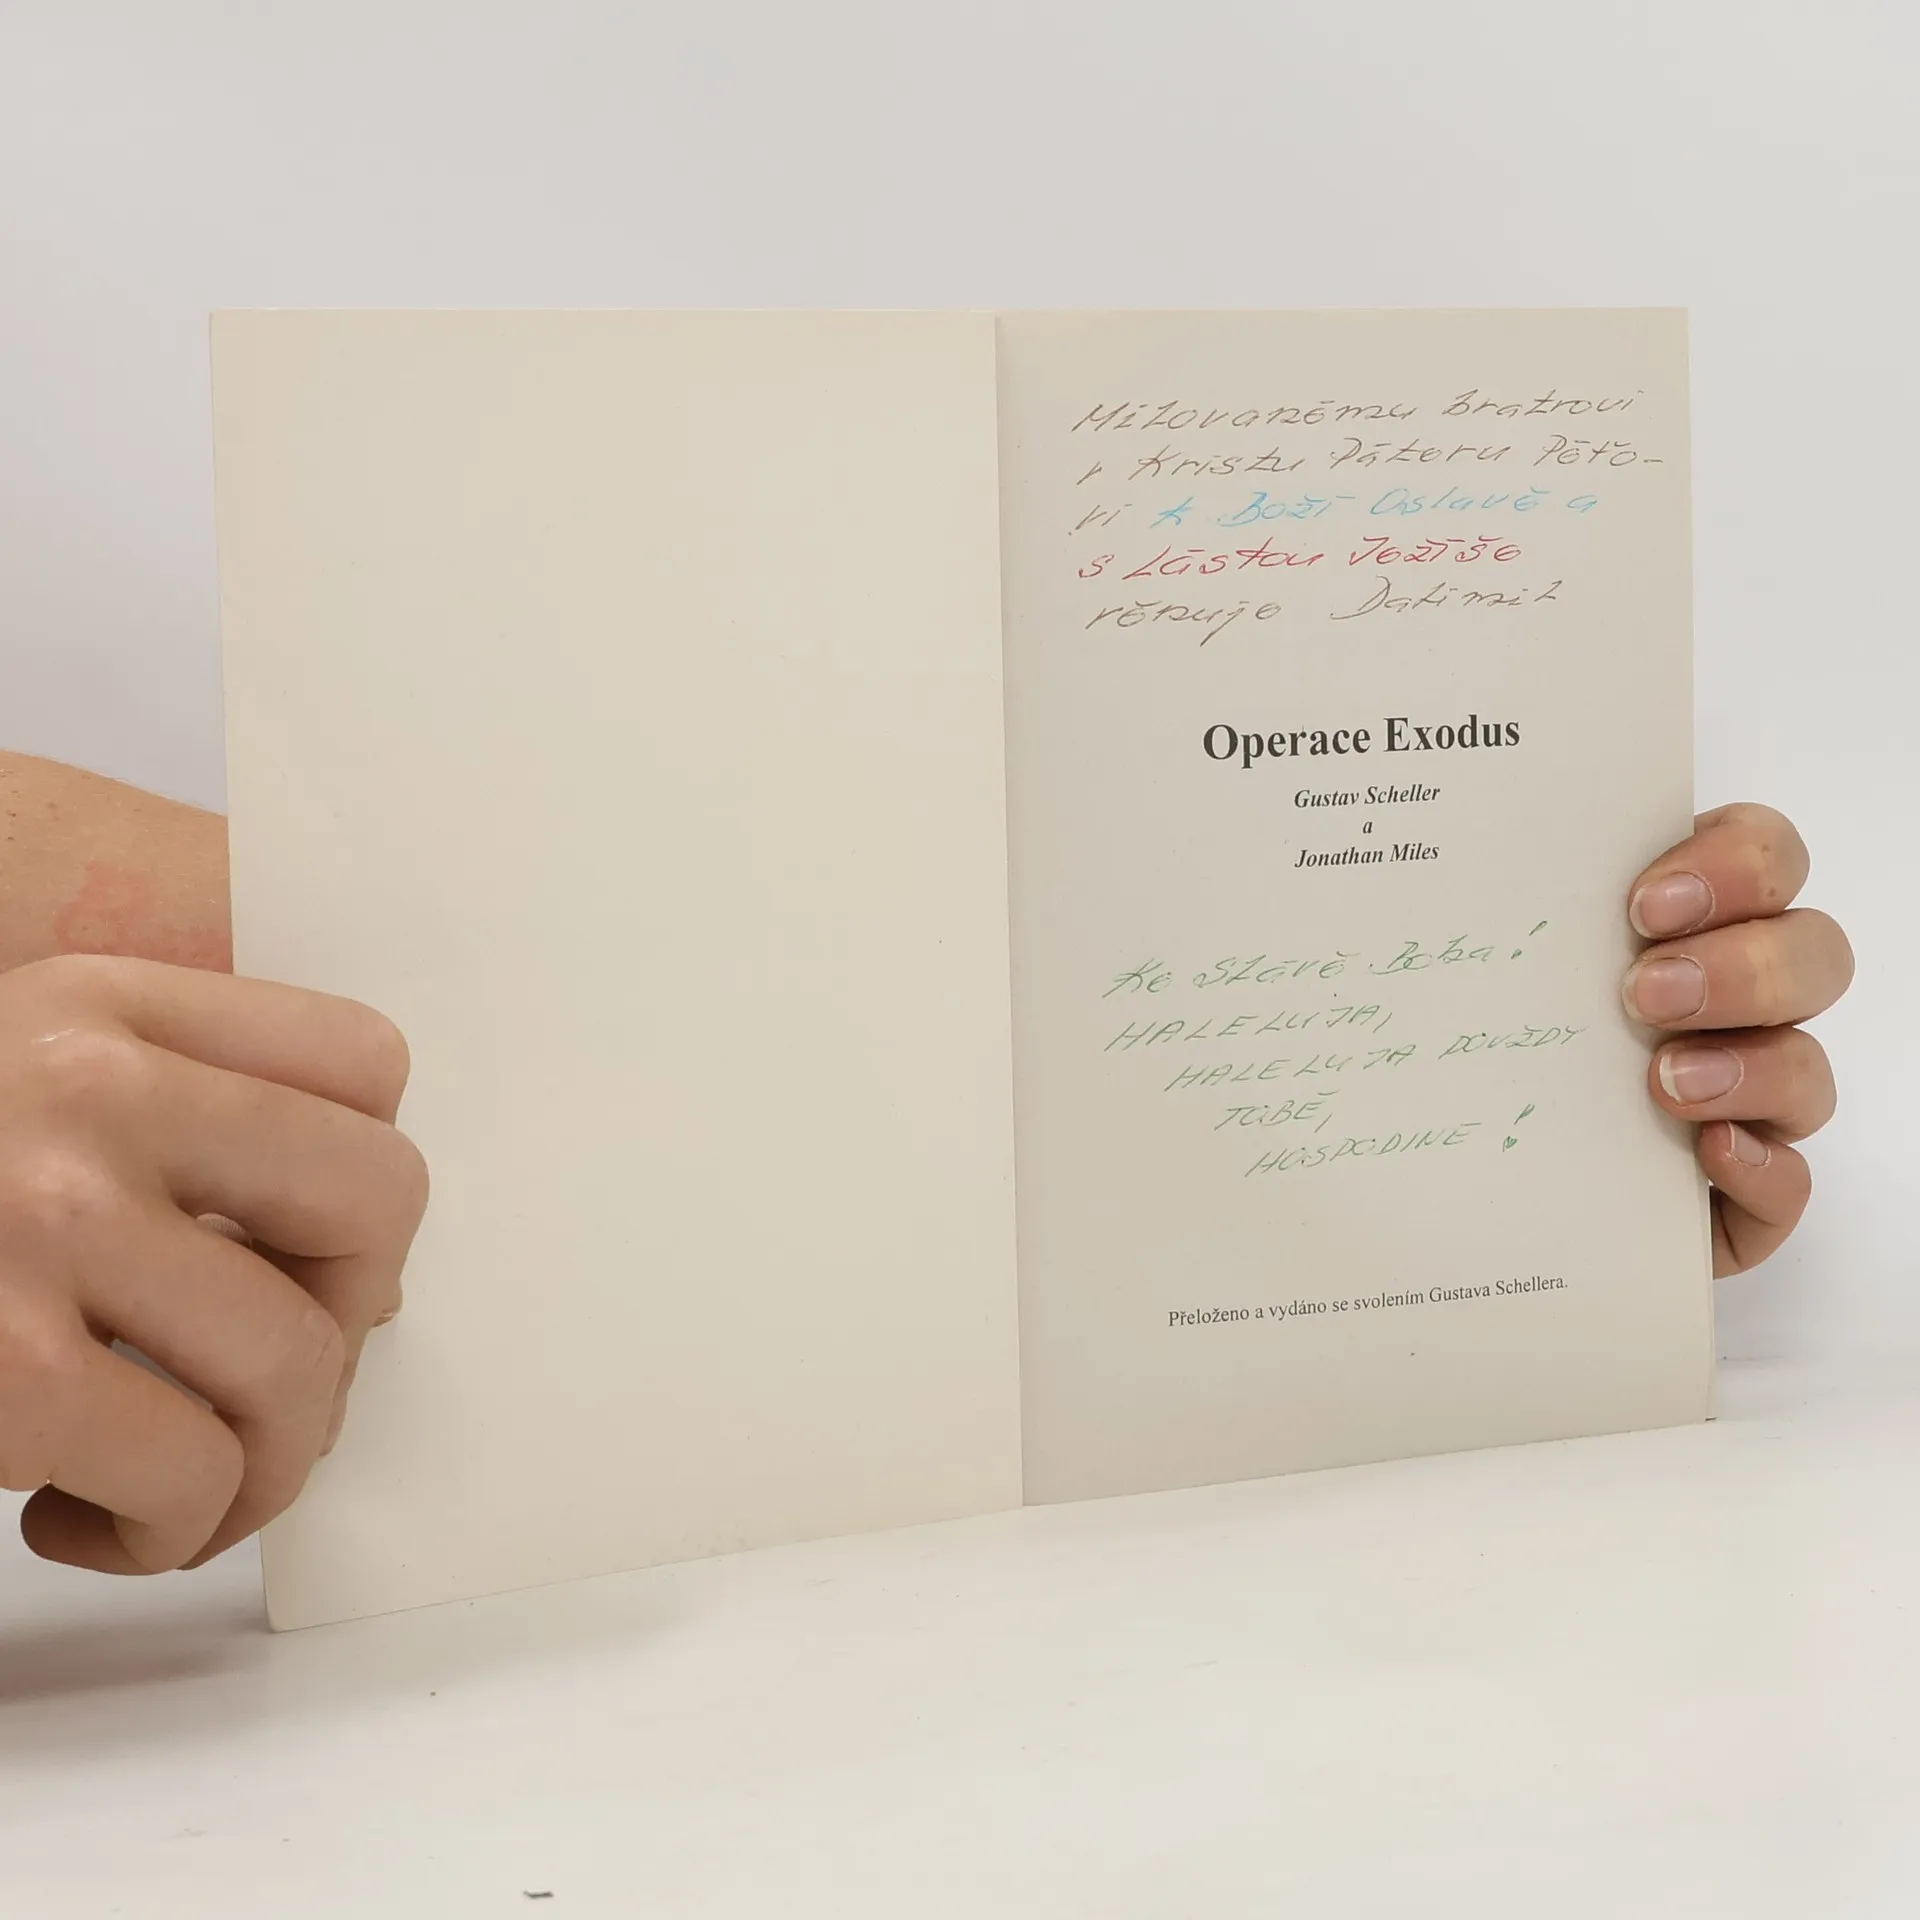 Milovanému bratrovi
v Kristu Páteru Péťo-
vi k Boží Oslavě a
s Láskou Ježíše
věnuje Dalimil
Operace Exodus
Gustav Scheller
a
Jonathan Miles
Ke Slávě Boha!
HALELUJA,
HALELUJA POVŽDY
TOBĚ,
HOSPODINE!
Přeloženo a vydáno se svolením Gustava Schellera.